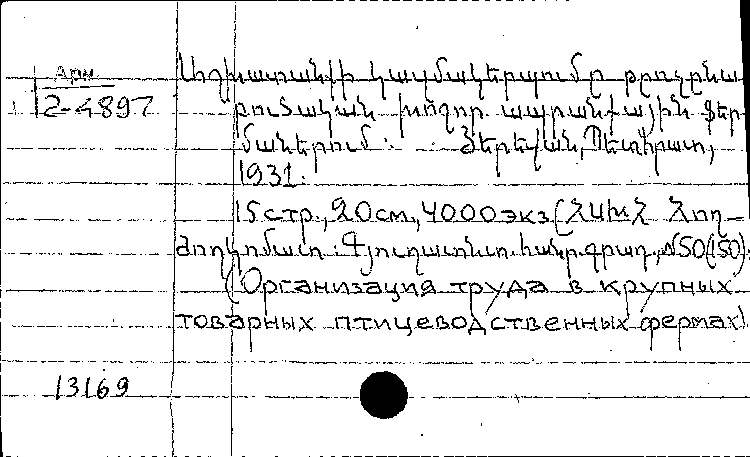 Арм.
2-4897
Աշխատանքի կազմակերպումը թռչընա
բուծական խոշոր ապրանքային ֆեր
մաներում: Յերեվան, Պետհրատ,
1931.
15 стр., 20 см, 4000 экз. (ՀԱԽՀ Հող-
ժողկոմատ: Գյուղատնտ. հանր. գրադ., №50(150).
(Организация труда в крупных
товарных птицеводственных фермах)
13169